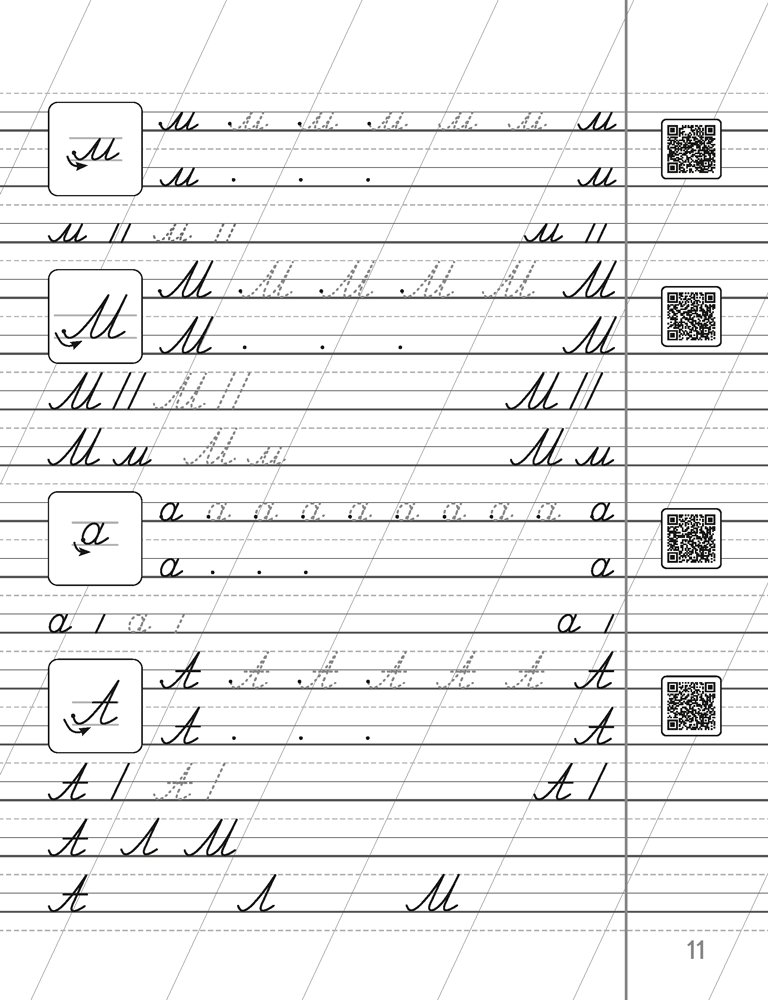 м
м м м м м м м
м . . . м
м // м // м //
М
М М М М М М
М . . . М
М // М // М //
М м М м М м
а
а а а а а а а а а а
а . . . а
а / а / а /
А
А А А А А А А
А . . . А
А / А / А /
А Л М
А Л М
11